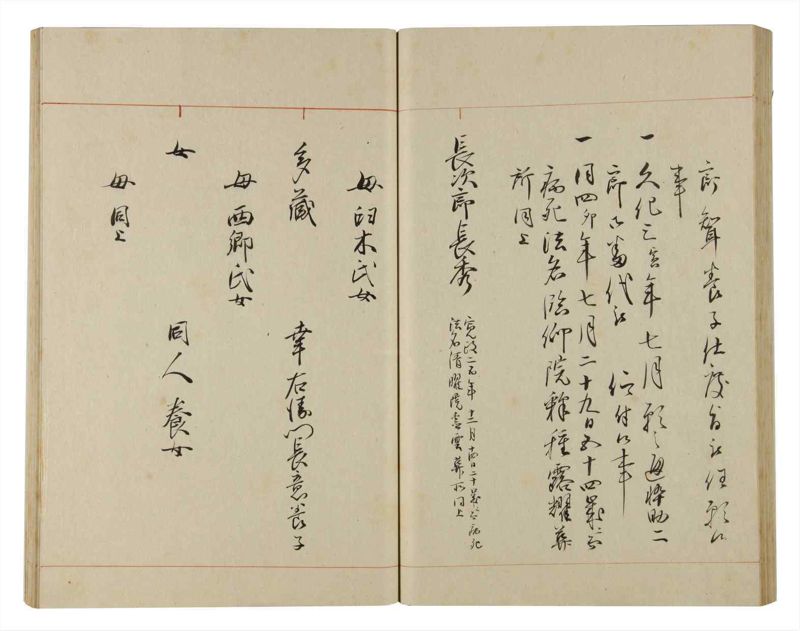 郎聟養子仕度旨被任願候
事
一 文化三寅年七月願之通悴助二
郎 番代被 仰付候事
一 同四卯年七月二十九日五十四歳ニ而
病死法名 仰院釋種露耀葬
所同上
長次郎長秀
寛政 年十二月十四日二十歳ニ而病死
法名清曜院 雲葬所同上
母臼木氏女
多蔵 幸右衛門長意養子
母西郷氏女
女 同人養女
母同上